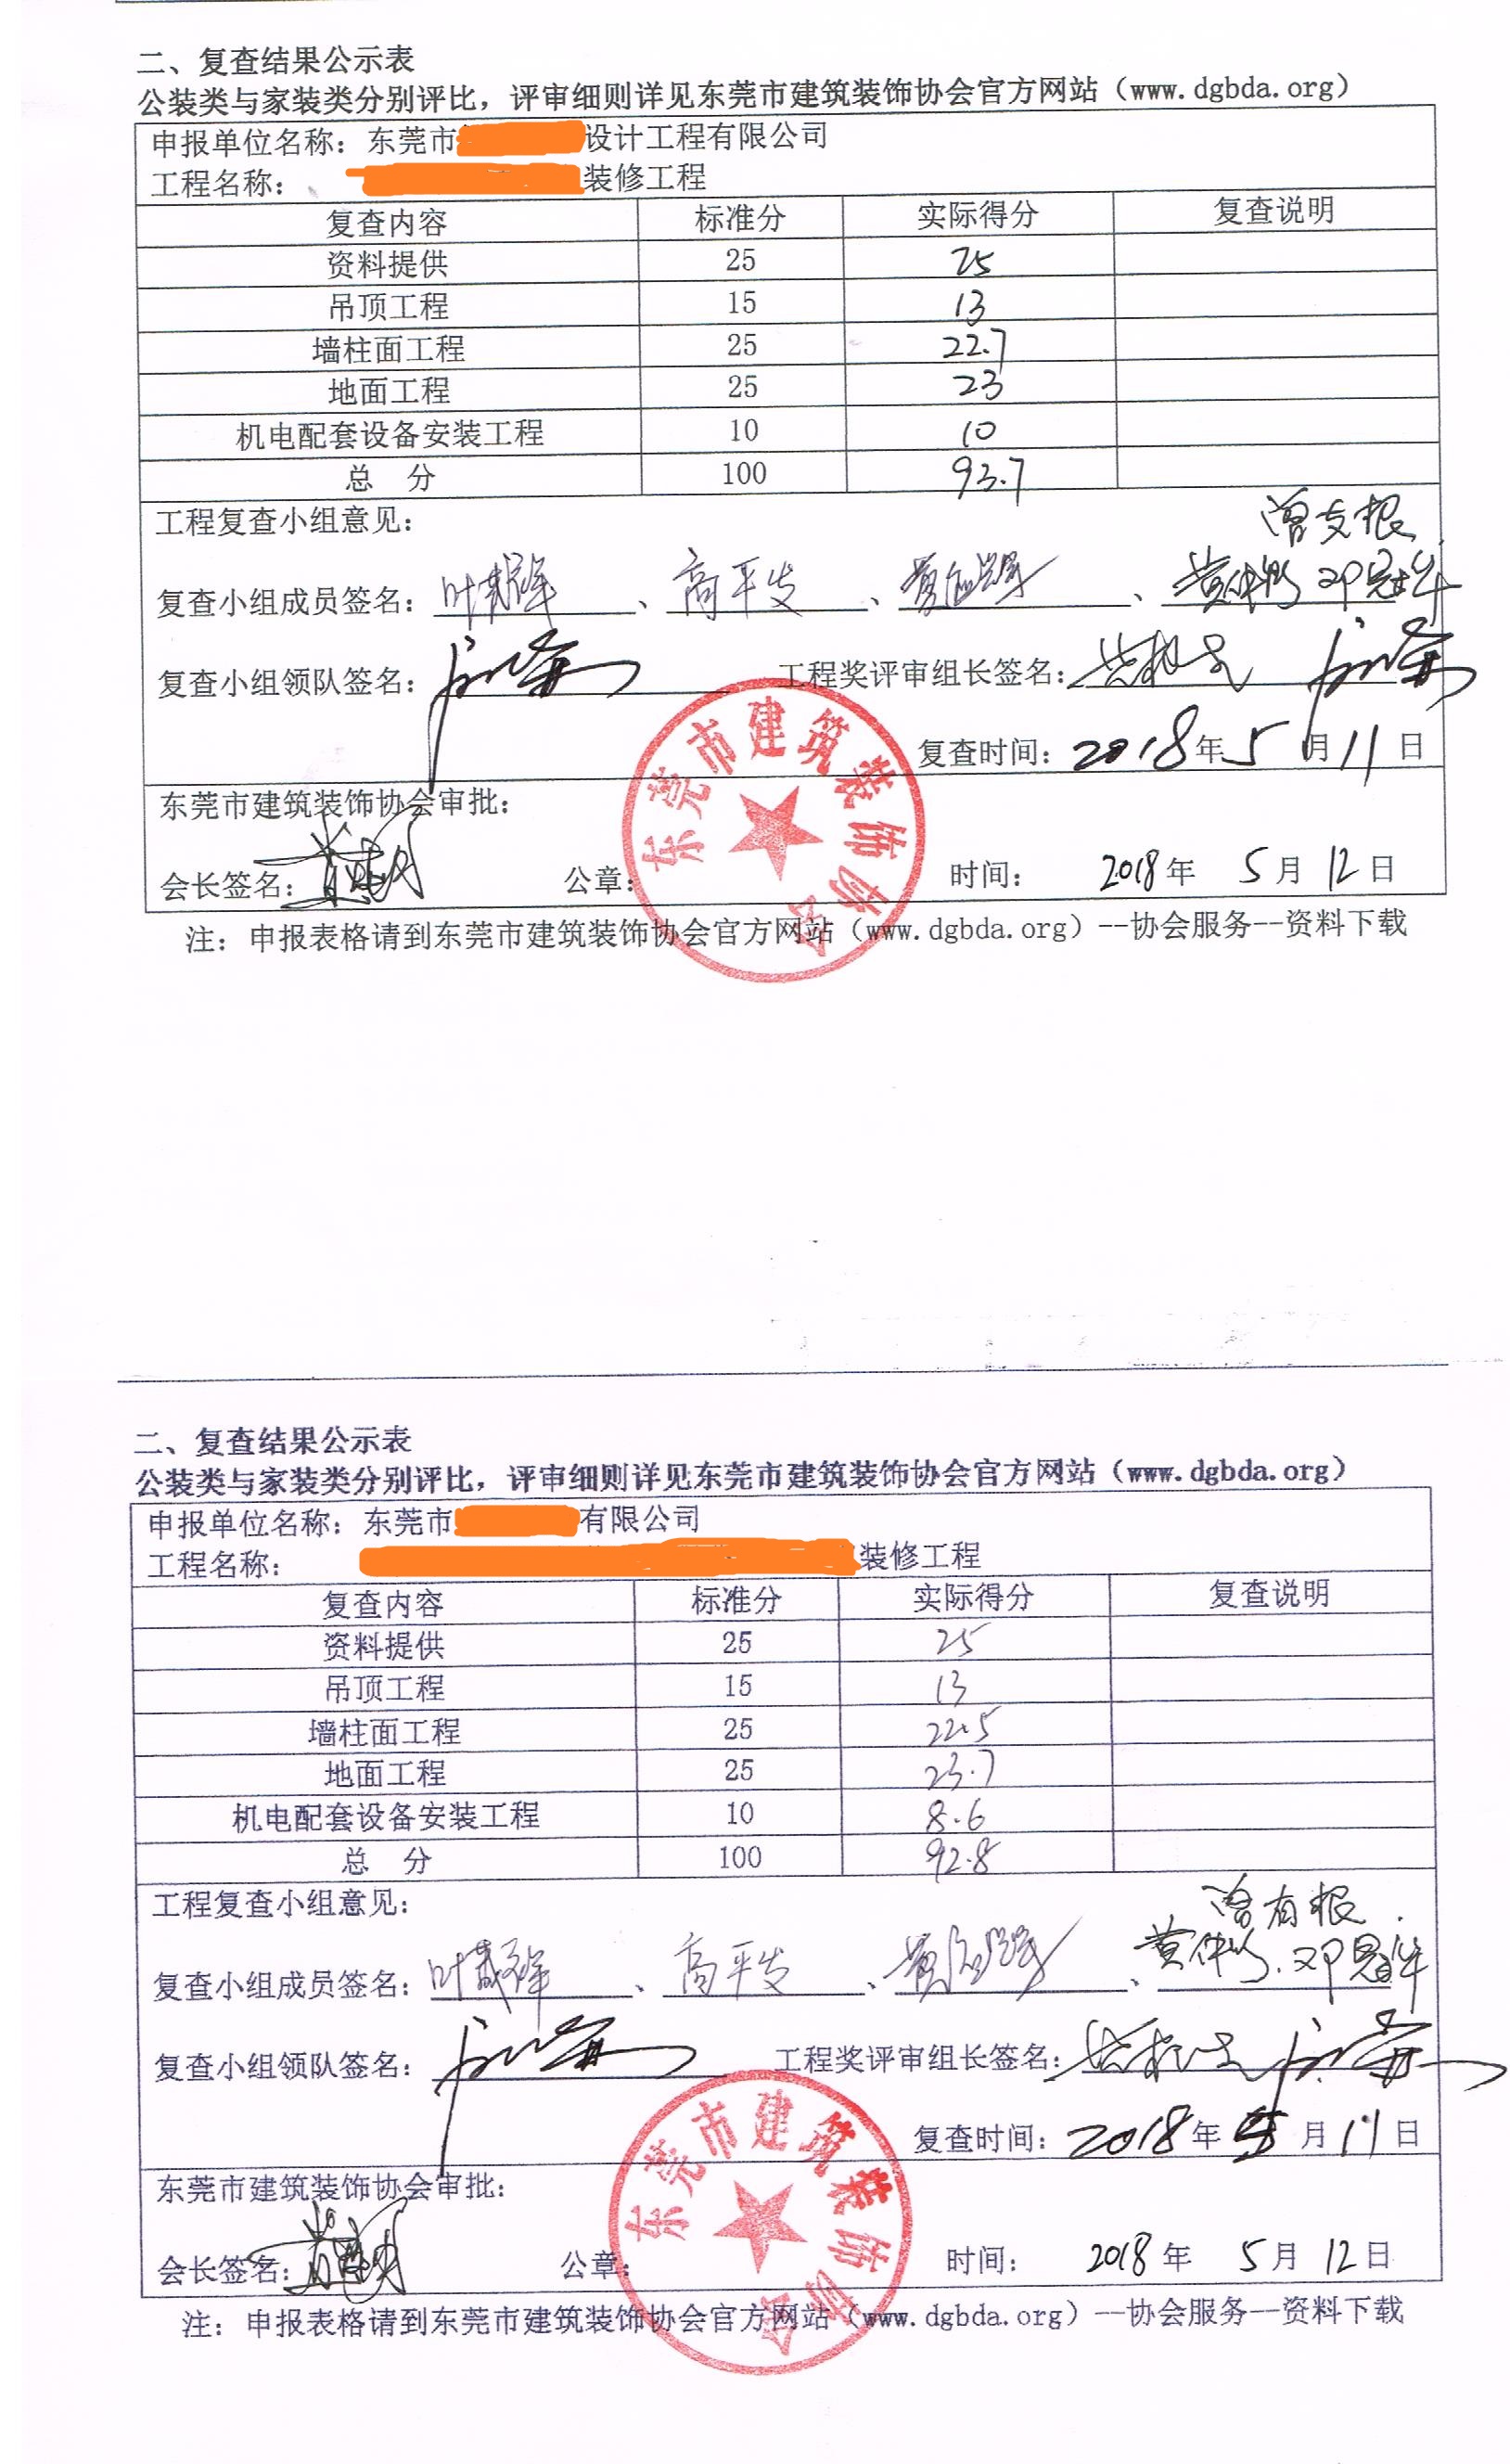 二、复查结果公示表
公装类与家装类分别评比，评审细则详见东莞市建筑装饰协会官方网站（www.dgbda.org）
申报单位名称：东莞市 设计工程有限公司
工程名称： 装修工程
复查内容 标准分 实际得分 复查说明
资料提供 25 25
吊顶工程 15 13
墙柱面工程 25 22.7
地面工程 25 23
机电配套设备安装工程 10 10
总 分 100 93.7
工程复查小组意见：
复查小组成员签名： 、高平安、 、
复查小组领队签名： 工程奖评审组长签名：
复查时间：2018年5月11日
东莞市建筑装饰协会审批：
会长签名： 公章： 时间： 2018年 5月12日
东莞市建筑装饰协会
注：申报表格请到东莞市建筑装饰协会官方网站（www.dgbda.org）--协会服务--资料下载
二、复查结果公示表
公装类与家装类分别评比，评审细则详见东莞市建筑装饰协会官方网站（www.dgbda.org）
申报单位名称：东莞市 有限公司
工程名称： 装修工程
复查内容 标准分 实际得分 复查说明
资料提供 25 25
吊顶工程 15 13
墙柱面工程 25 22.5
地面工程 25 23.7
机电配套设备安装工程 10 8.6
总 分 100 92.8
工程复查小组意见：
曾有根
复查小组成员签名： 、高平安、 、
复查小组领队签名： 工程奖评审组长签名：
复查时间：2018年5月11日
东莞市建筑装饰协会审批：
会长签名： 公章： 时间： 2018年 5月12日
东莞市建筑装饰协会
注：申报表格请到东莞市建筑装饰协会官方网站（www.dgbda.org）--协会服务--资料下载